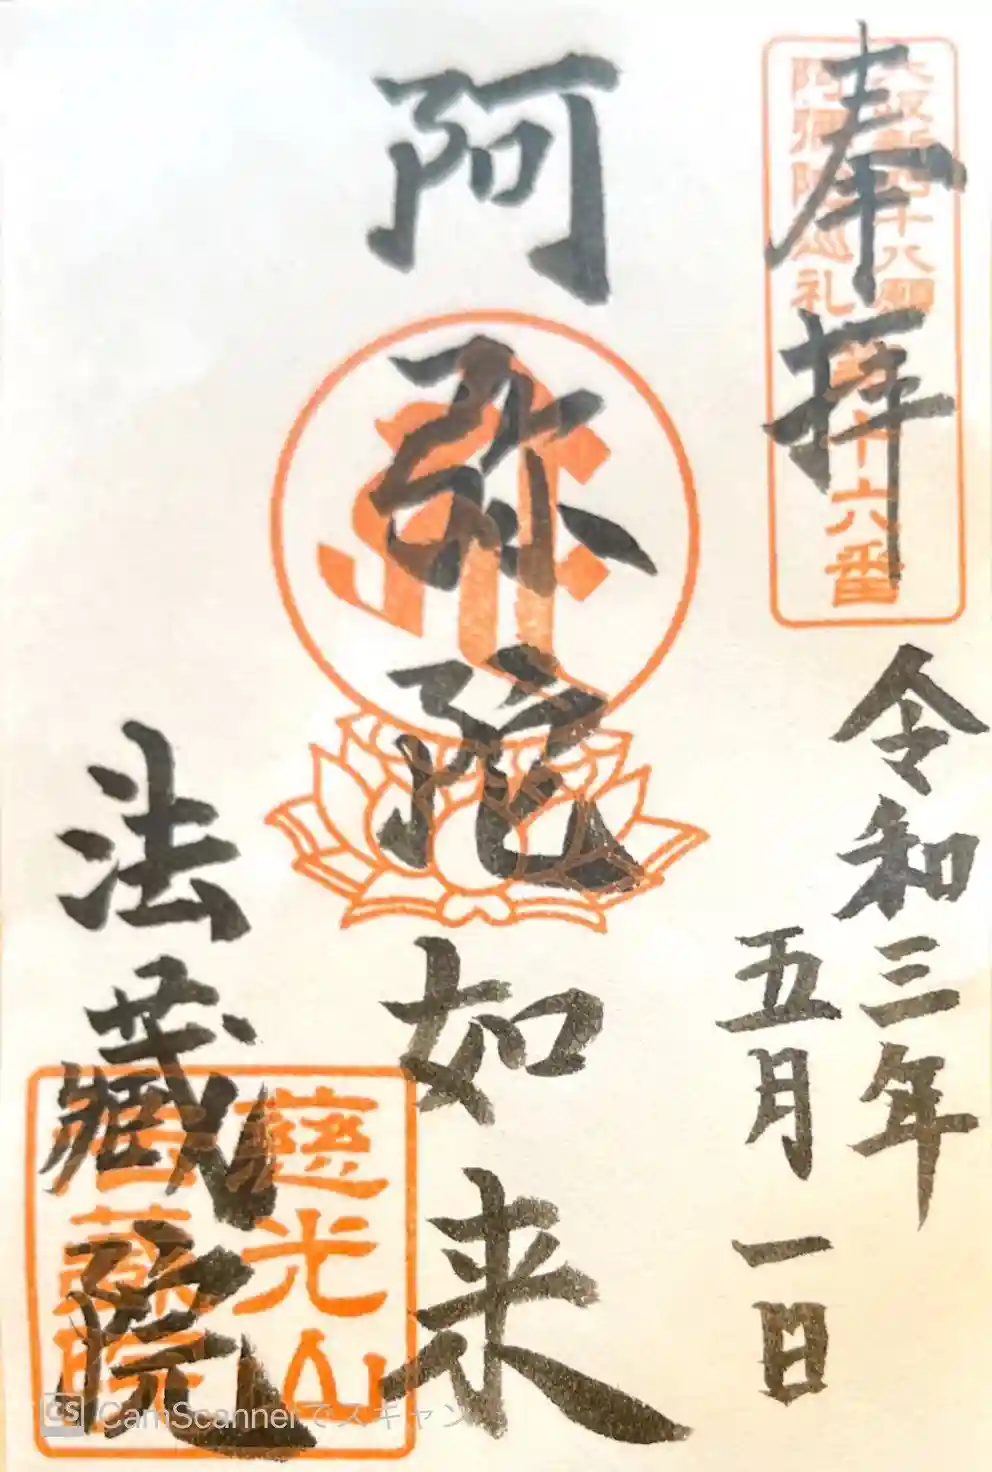 奉拝
大阪新四十八願
阿弥陀巡礼
十六番
令和三年
五月一日
阿弥陀如来
法蔵院
慈光山
法蔵院
CS CamScannerでスキャン